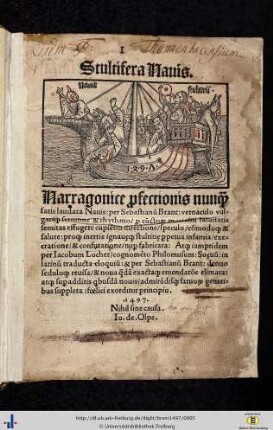 I
Stultifera Nauis.
Narragonice ꝓfectionis nunꝗ̃
satis laudata Nauis: per Sebastianū Brant: vernaculo vul-
gariqꝫ sermone & rhythmo/ ꝑ
semitas effugere cupiētū directione/ speculo/ cōmodoqꝫ &
salute: proqꝫ inertis ignaueqꝫ stulticię ꝑpetua infamia/ exe-
cratione/ & confutatione/ nuꝑ fabricata: Atqꝫ iampridem
per Iacobum Locher/ cognomēto Philomusum: Sueuū: in
latinū traducta eloquiū: & per Sebastianū Brant: denuo
seduloqꝫ reuisa/ & noua ꝗdā exactaqꝫ emendatōe elimata:
atqꝫ supadditis ꝗbusdā nouis/ admirādisqꝫ fatuoꝝ generi-
bus suppleta: fœlici exorditur principio.
.1497.
Nihil sine causa.
Io. de Olpe.
http://dl.ub.uni-freiburg.de/diglit/brant1497/0005
© Universitätsbibliothek Freiburg